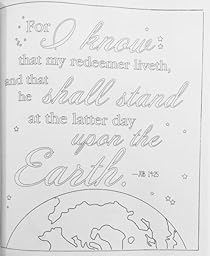 For I know
that my redeemer liveth,
and that
he shall stand
at the latter day
upon the
Earth. —JOB 19:25